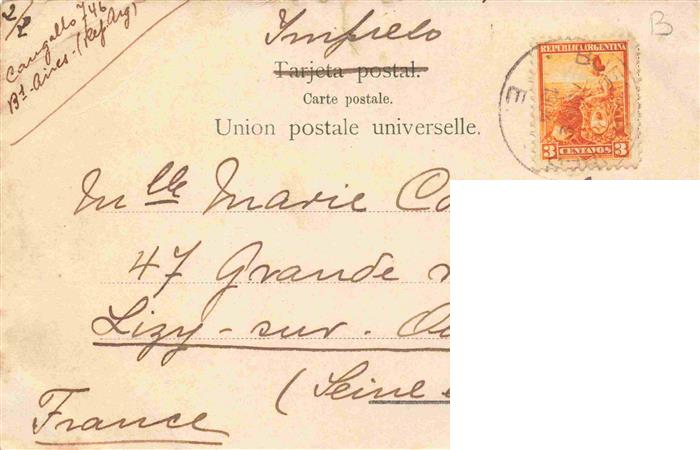 2/2
Cangallo 746
Bs-Aires-(Rep Arg)
Impreso
B
Tarjeta postal.
Carte postale.
Union postale universelle.
REPUBLICA ARGENTINA
3 CENTAVOS 3
Mlle Marie Co
47 Grande r
Lizy-sur-Ou
(Seine
France